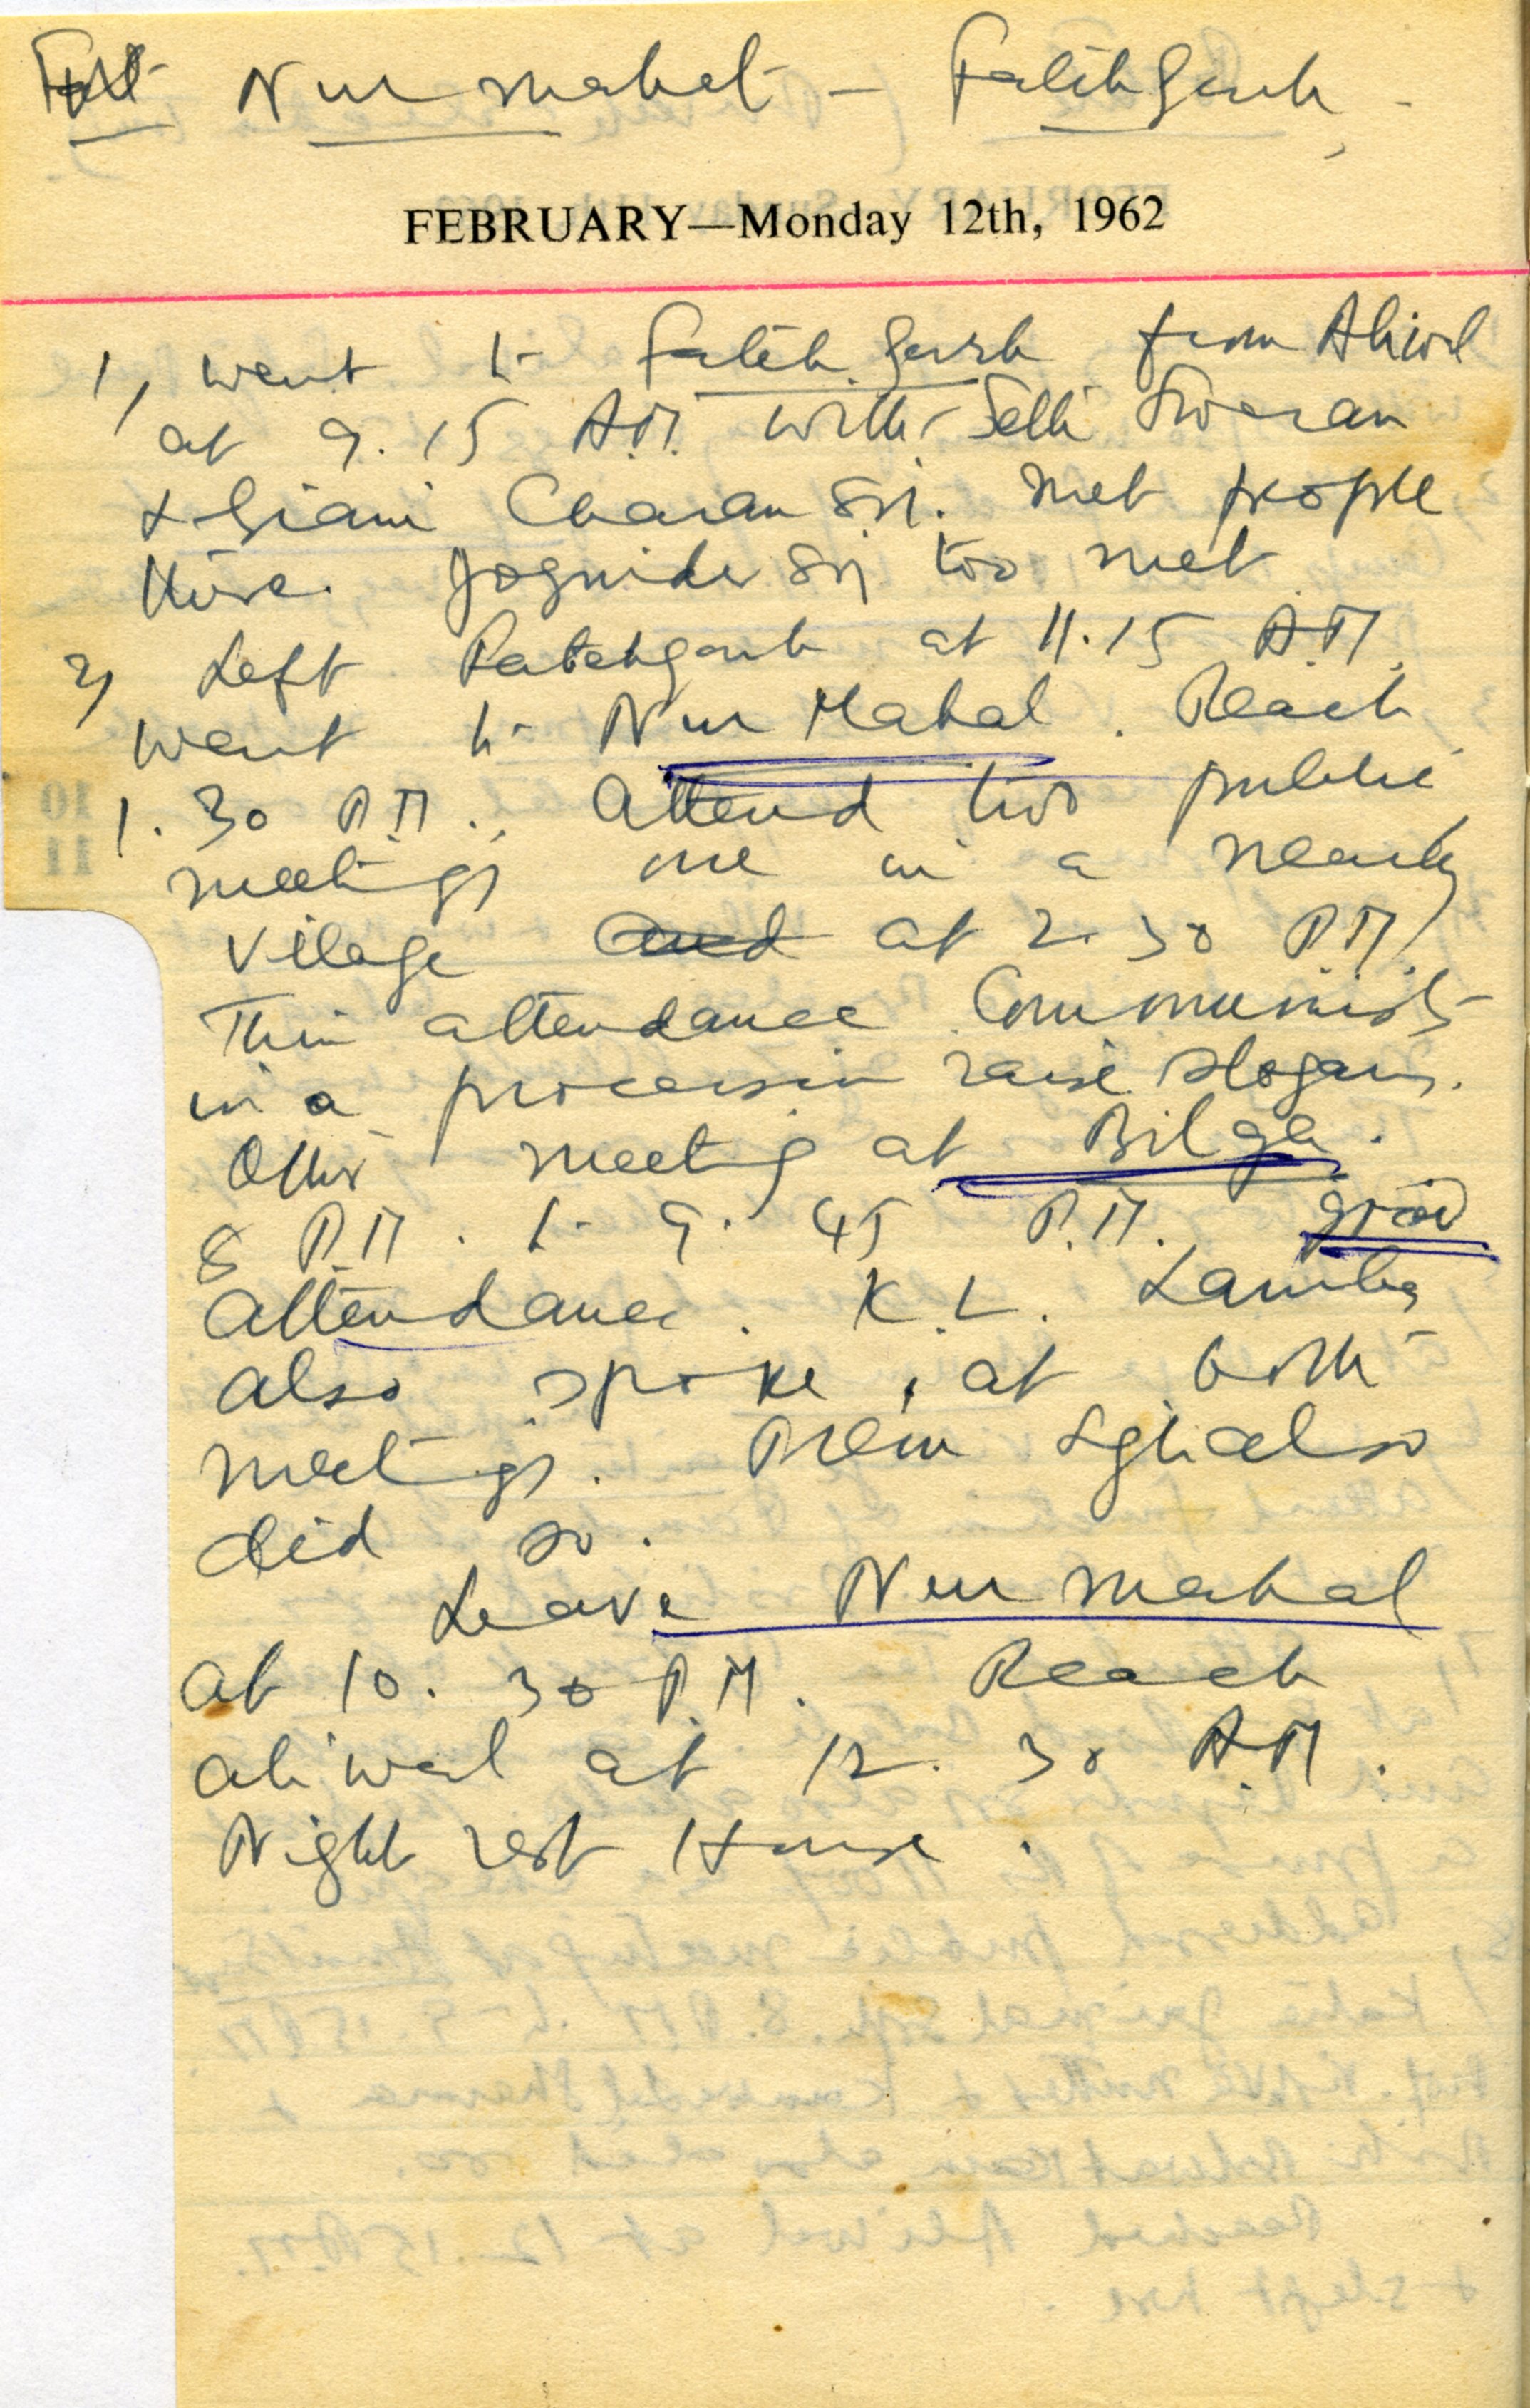 Nur mahal - Fatehgarh -
FEBRUARY—Monday 12th, 1962
1, went to Fateh Garh from Aliwal
at 9.15 A.M. with Sethi Swaran
& Giani Charan Sgh. met people
there. Joginder Sgh too met
2, Left Fatehgarh at 11.15 A.M.
went to Nur Mahal. Reach
1.30 P.M. Attend two public
meetings one in a nearby
village and at 2.30 P.M.
Thin attendance Communists
in a procession raise slogans.
Other meeting at Bilga.
8 P.M. to 9.45 P.M. good
attendance. K.L. Lamba
also spoke at both
meetings. Prem Sgh also
did so.
Leave Nur mahal
at 10.30 P.M. Reach
aliwal at 12.30 A.M.
Night rest House.